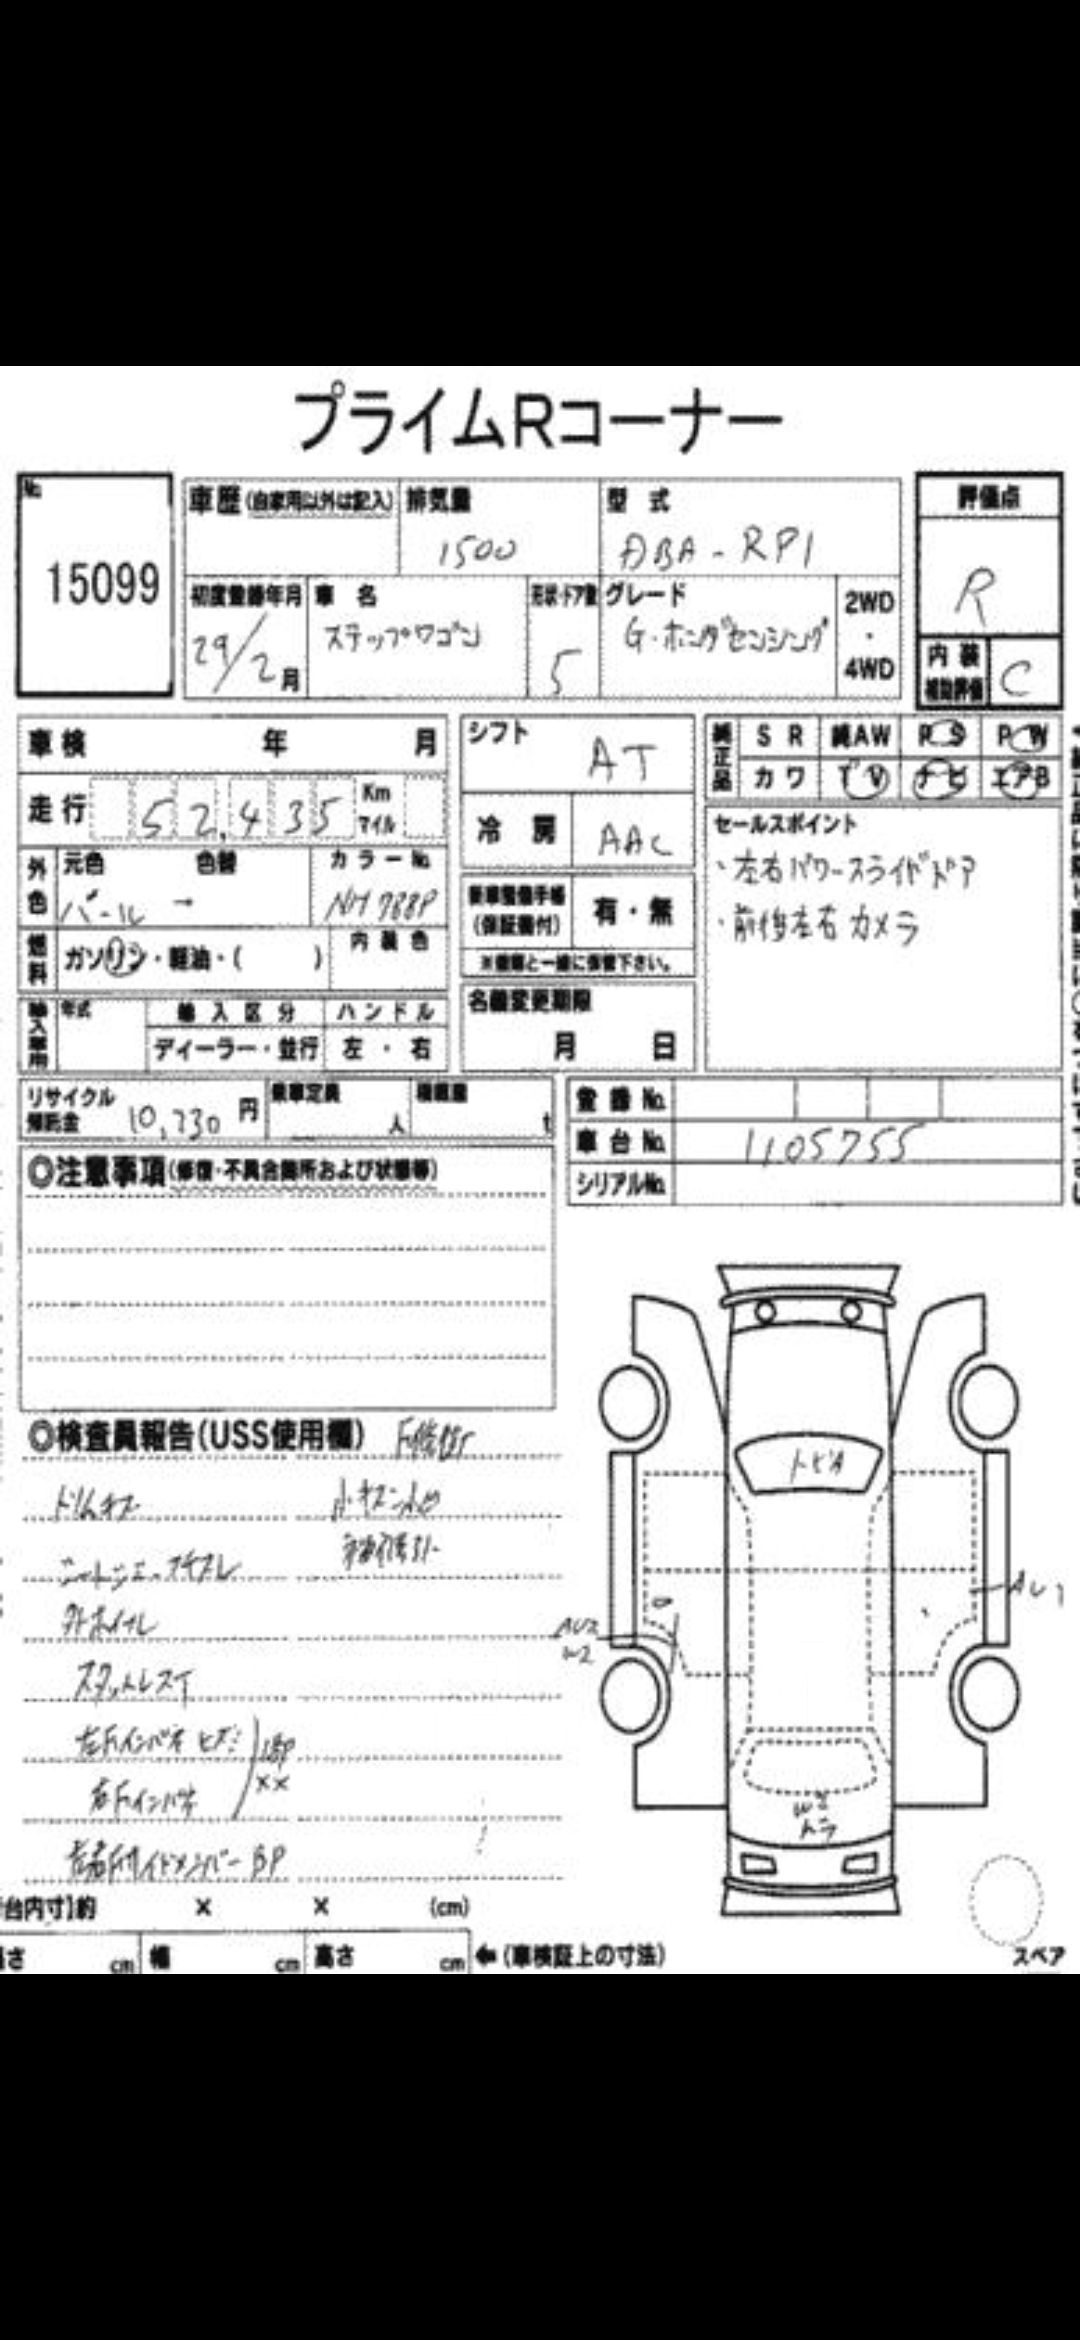 プライムRコーナー
No.
15099
車歴(自家用以外は記入)
排気量
1500
型 式
DBA-RP1
評価点
R
初度登録年月
29/2月
車 名
ステップワゴン
形状・ドア数
5
グレード
G・ホンダセンシング
2WD
・
4WD
内装
補助評価
C
車検 年 月
走行 52,435 Km
マイル
シフト AT
冷 房 AAC
純正品
S R 純AW P S P W
カワ T V ナビ エアB
セールスポイント
・左右パワースライドドア
・前後左右カメラ
外色
元色 色替
パール →
カラーNo.
NH788P
燃料
ガソリン・軽油・( )
内装色
新車整備手帳
(保証書付)
有・無
※書類と一緒に保管下さい。
輸入車用
年式
輸入区分
ディーラー・並行
ハンドル
左・右
名義変更期限
月 日
リサイクル
預託金 10,730 円
乗車定員
人
積載量
t
登録No.
車台No. 1105755
シリアルNo.
◎注意事項(修復・不具合箇所および状態等)
◎検査員報告(USS使用欄) F修復
ドリムキズ
小キズ 小凹
外ホイール
スタットレスT
左Fインパネ ヒズミ
右Fインパネ
BP
××
左右Fサイドメンバー BP
トビA
AU1
AU2
W2
W2
トラ
台内寸]約 × × (cm)
cm 幅 cm 高さ cm ←(車検証上の寸法)
スペア